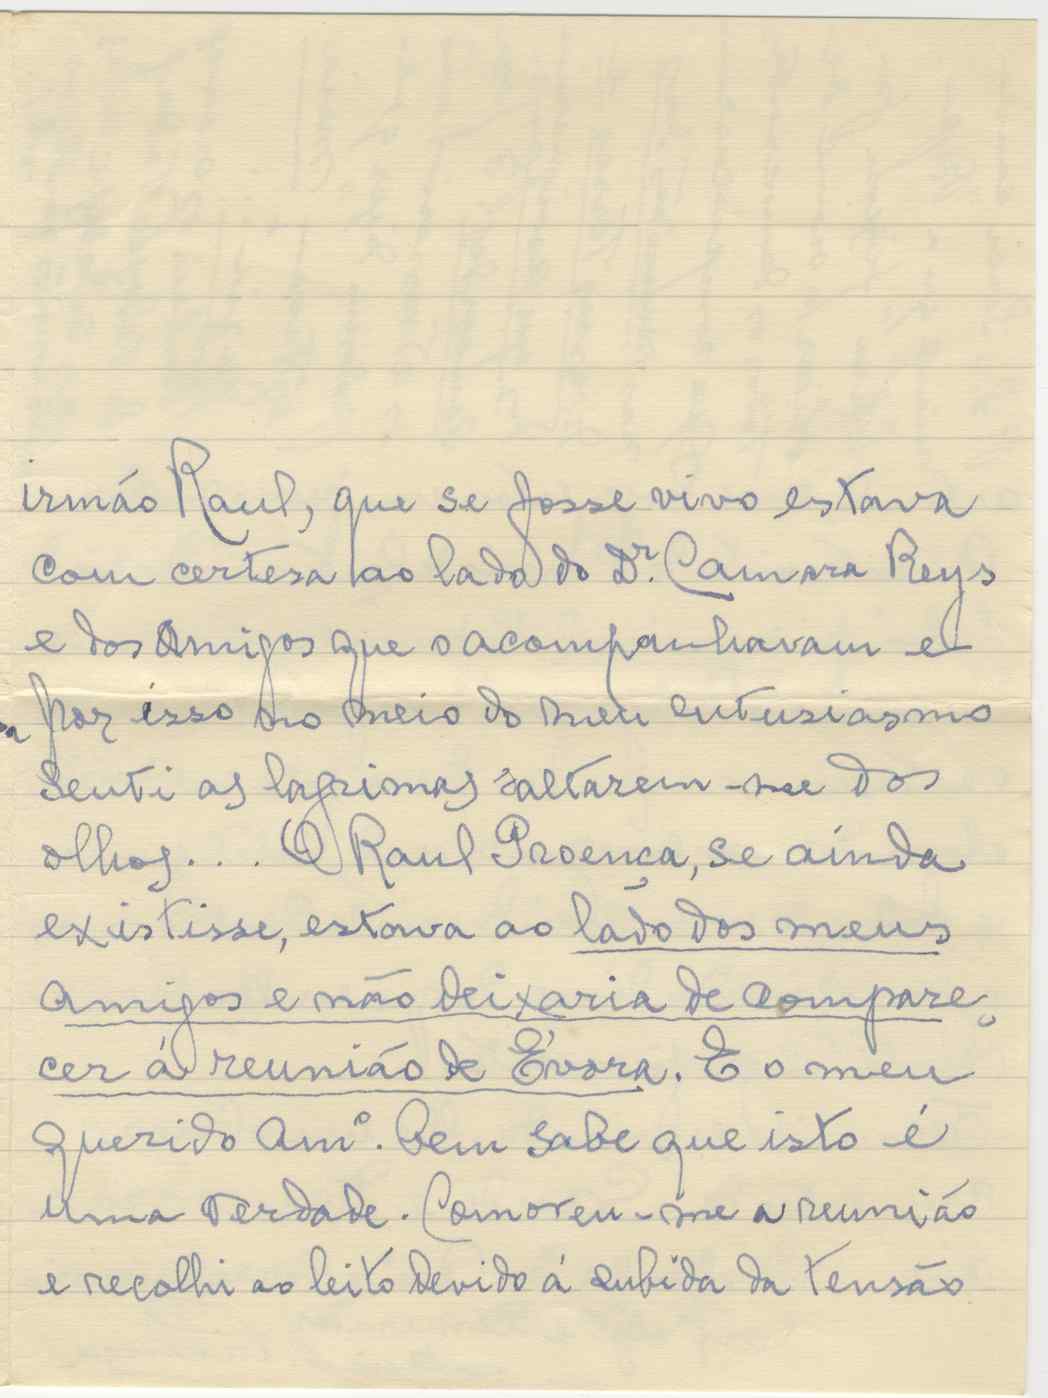 irmão Raul, que se fosse vivo estava
com certesa ao lado do Dr. Camara Reys
e dos Amigos que o acompanhavam e
por isso no meio do meu entusiasmo
senti as lagrimas saltarem-me dos
olhos... O Raul Proença, se ainda
existisse, estava ao lado dos meus
amigos e não deixaria de compare-
cer á reunião de Évora. E o meu
querido Amº. bem sabe que isto é
uma verdade. Comoveu-me a reunião
e recolhi ao leito devido á subida da tensão